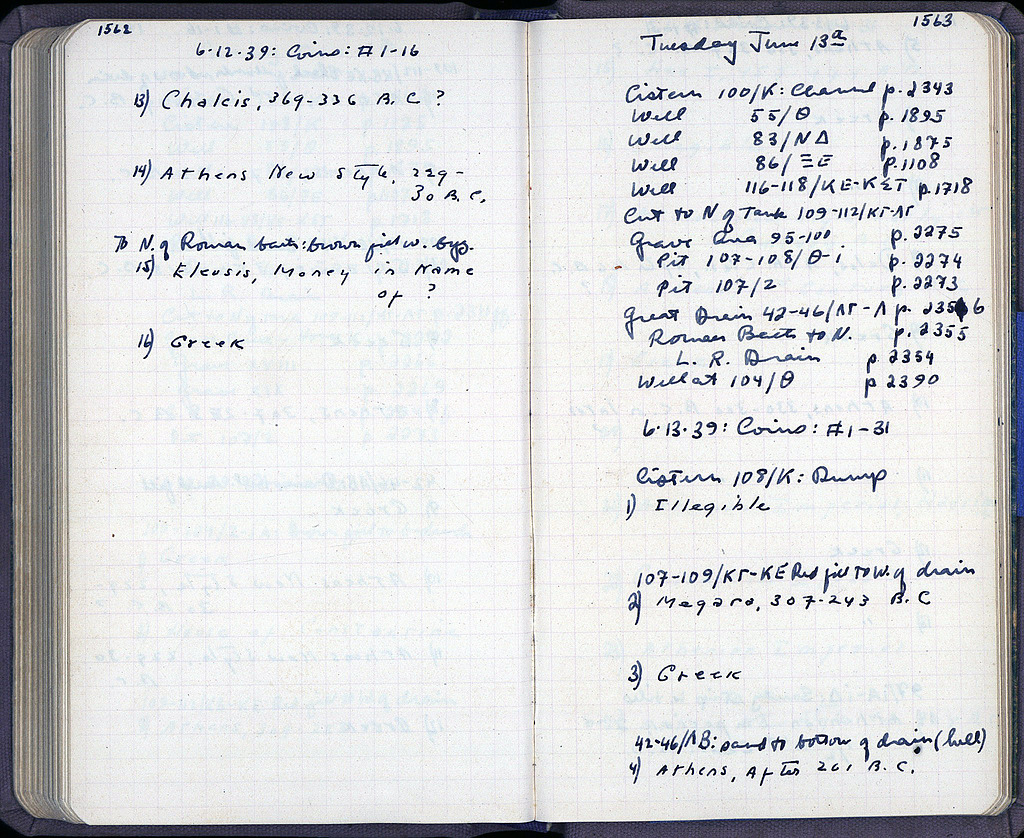 1562
6-12-39: Coins: #1-16
13) Chalcis, 369-336 B.C ?
14) Athens New Style, 229-
30 B.C.
To N. of Roman bath: brown fill w. byz.
15) Eleusis, Money in Name
of ?
16) Greek
1563
Tuesday June 13th
Cistern 100/K: Channel p. 2343
Well 55/Θ p. 1895
Well 83/ΝΔ p. 1875
Well 86/ΞΕ p. 1108
Well 116-118/ΚΕ-ΚΣΤ p. 1718
Cut to N of Tank 109-112/ΚΓ-ΛΓ
Grave Area 95-100 p. 2275
Pit 107-108/Θ-Ι p. 2274
Pit 107/2 p. 2273
Great Drain 42-46/ΛΓ-Λ p. 2356
Roman Bath to N. p. 2355
L. R. Drain p 2354
Well at 104/Θ p 2390
6-13-39: Coins: #1-31
Cistern 108/K: Dump
1) Illegible
107-109/ΚΓ-ΚΕ Red fill to W. of drain
2) Megara, 307-243 B.C
3) Greek
42-46/ΛΒ: sand to bottom of drain
4) Athens, After 261 B.C.